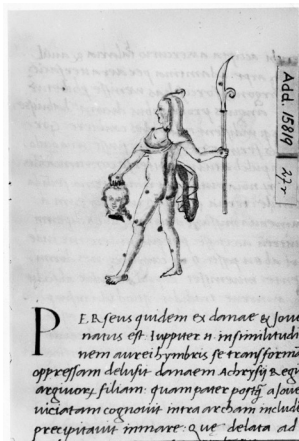 Add. 15819
27r
PERseus quidem ex danae & Joue
natus est. Iuppiter n. in similitudi
nem aurei hymbris se transforma
oppressam delusit danaem Achrysij Regis
argiuorꝝ filiam: quam pater postq̃ a Joue
uiciatam cognouit intra archam includi
precipitauit in mare. Que delata ad